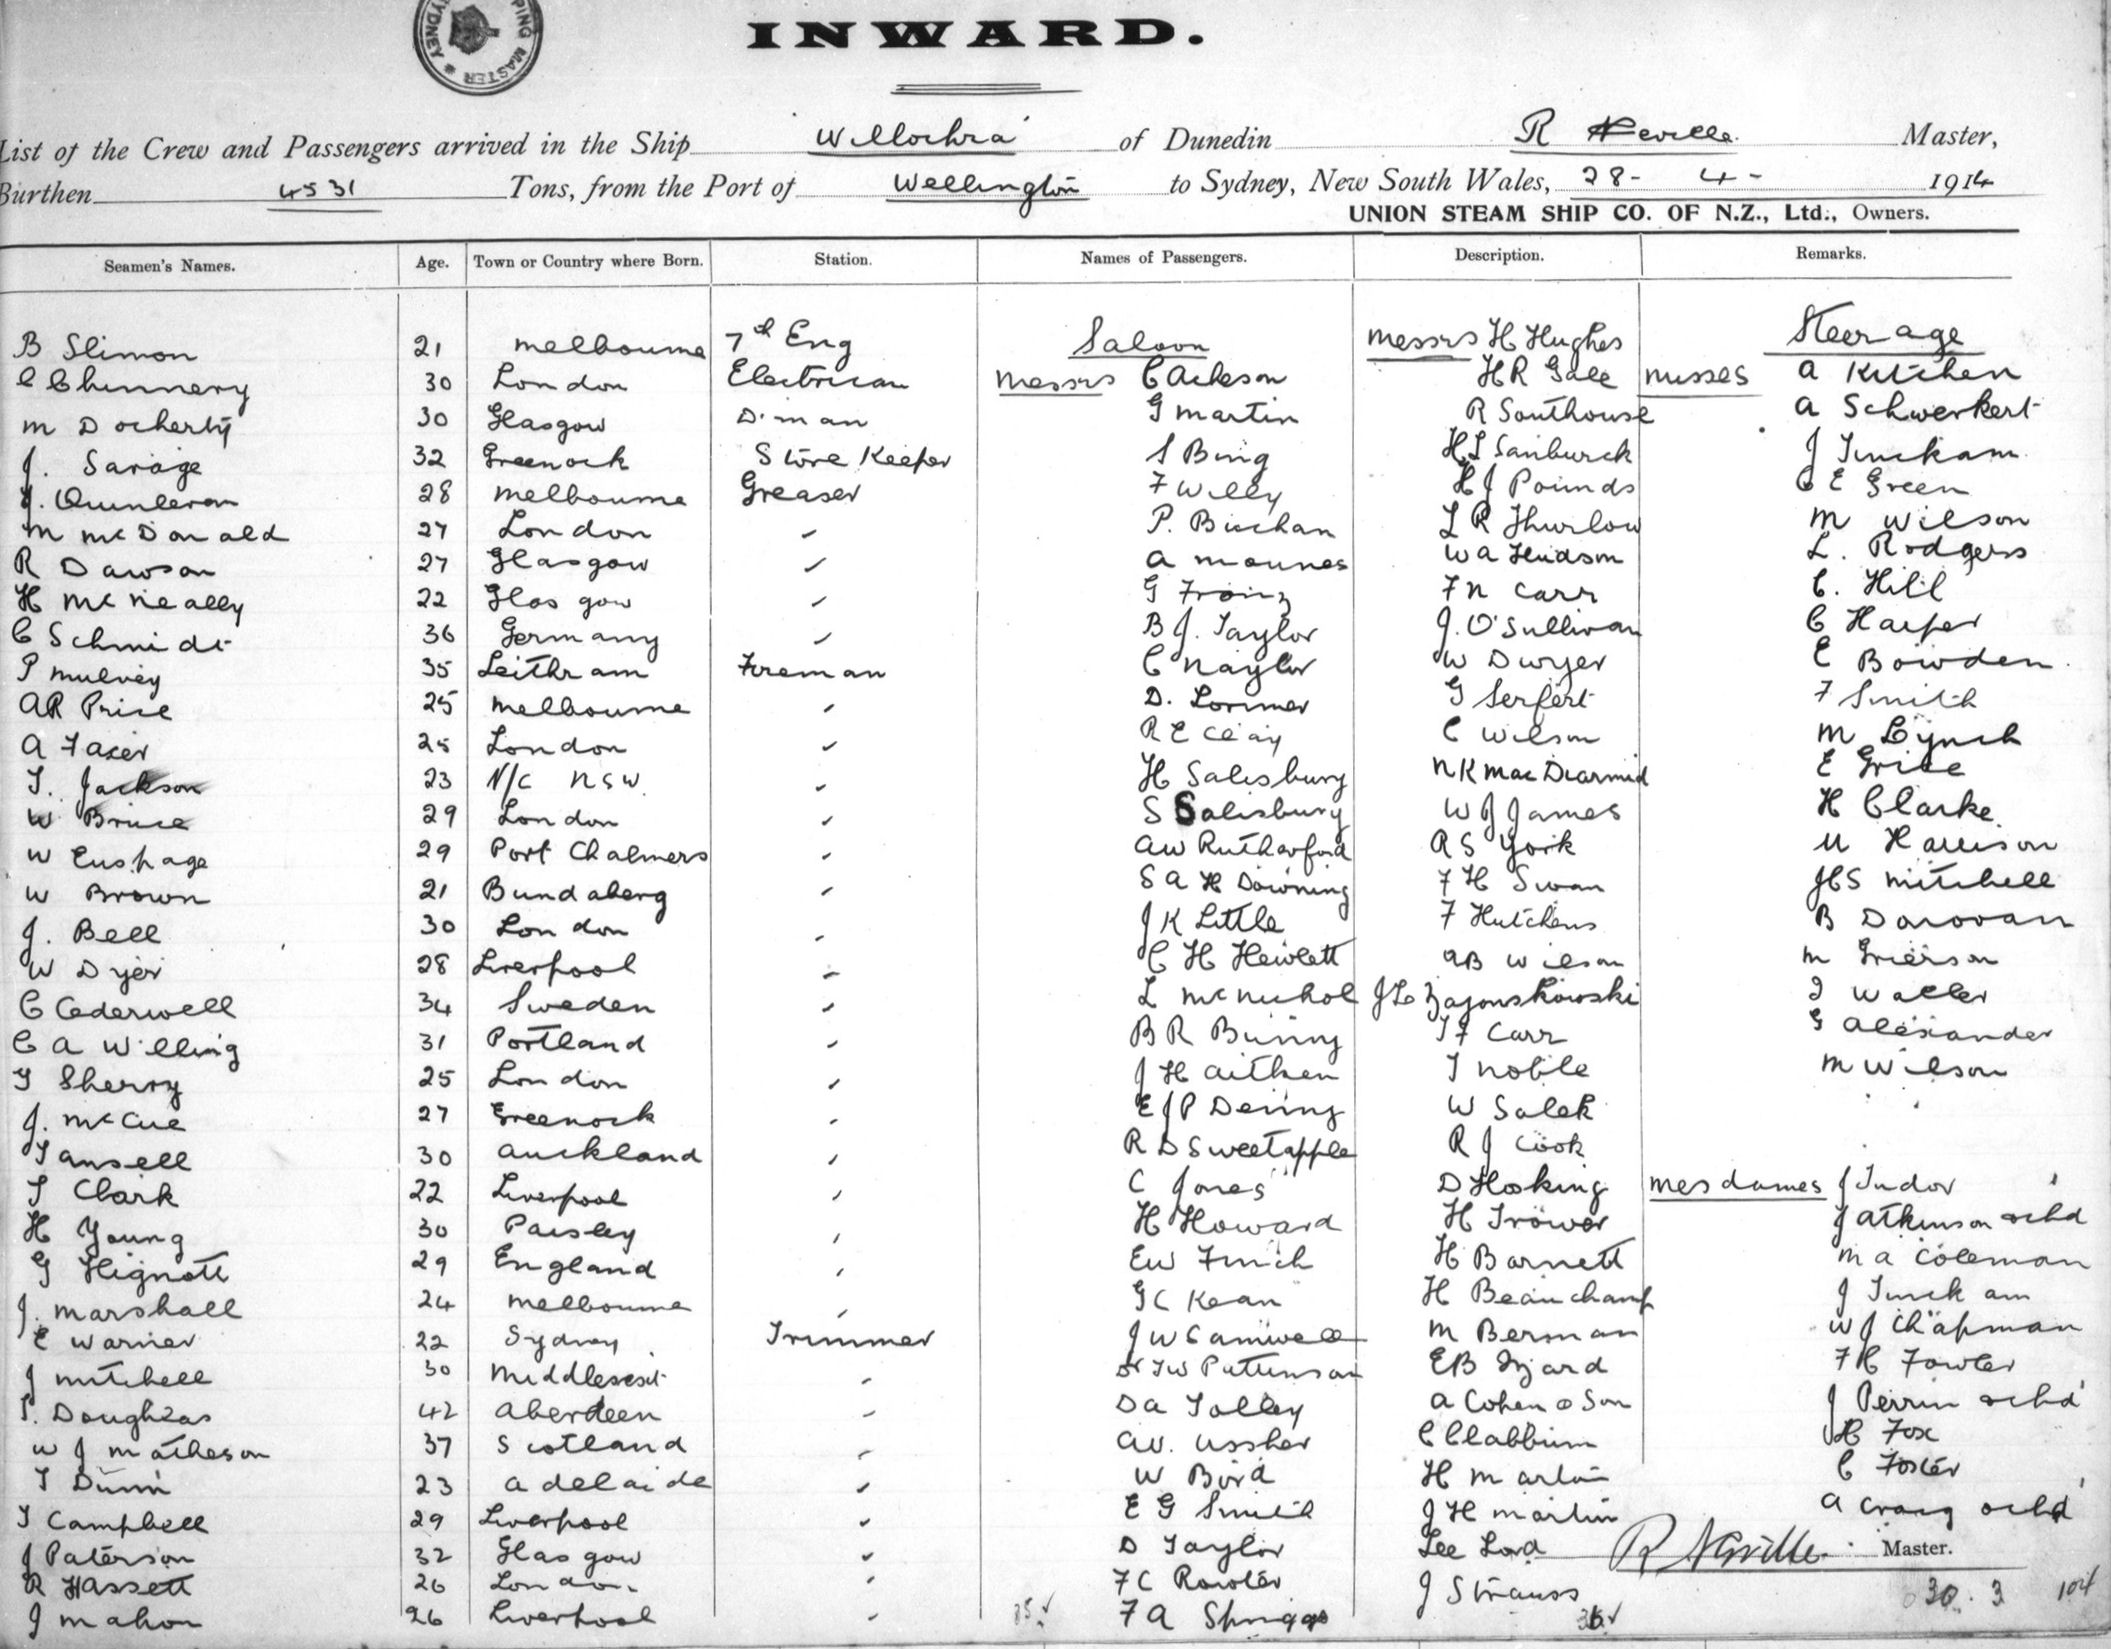 SYDNEY * SHIPPING MASTER
INWARD.
List of the Crew and Passengers arrived in the Ship Willochra of Dunedin R Neville Master,
Burthen 4531 Tons, from the Port of Wellington to Sydney, New South Wales, 28- 4- 1914
UNION STEAM SHIP CO. OF N.Z., Ltd., Owners.
Seamen's Names. Age. Town or Country where Born. Station. Names of Passengers. Description. Remarks.
B Slimon 21 Melbourne 7th Eng Saloon Messrs H Hughes Steerage
C Chinnery 30 London Electrician Messrs C Acheson H R Gale Misses A Kitchen
M Docherty 30 Glasgow D'man G Martin R Southouse A Schwerkert
J. Savage 32 Greenock Store Keeper S Bing H L Sainburck J Tinckam
J. Quinlevan 28 Melbourne Greaser F Willy H J Pounds C E Green
M McDonald 27 London P. Buchan L R Thurlow M Wilson
R Dawson 27 Glasgow A Mounes W A Hudson L. Rodgers
H McNeally 22 Glasgow G Franz F N Carr C. Hill
C Schmidt 36 Germany B J. Taylor J. O'Sullivan C Harper
P Mulvey 35 Leithram Fireman C Naylor W Dwyer E Bowden
A R Price 25 Melbourne D. Lorimer G Serfert F Smith
A Fazer 25 London R E Clay C Wilson M Lynch
T. Jackson 23 N/C NSW. H Salisbury N K MacDiarmid E Grice
W Bruce 29 London S Salisbury W J James H Clarke.
W Euspage 29 Port Chalmers A W Rutherford R S York M Harrison
W Brown 21 Bundaberg S A H Downing F H Swan J C S Mitchell
J. Bell 30 London J K Little F Hutchens B Donovan
W Dyer 28 Liverpool C H Hewlett A B Wilson M Grierson
C Cederwell 34 Sweden L McNichol J L Zajonskowski J Waller
C A Willing 31 Portland B R Bunny T F Carr G Alexander
T Sherry 25 London J H Aitken T Noble M Wilson
J. McCue 27 Greenock E J P Dening W Salek
T Ansell 30 Auckland R D Sweetapple R J Cook
T Clark 22 Liverpool C Jones D Hosking Mesdames J Tudor
H Young 30 Paisley H Howard H Trower J Atkinson & chd
G Hignott 29 England E W Finch H Barnett M A Coleman
J. Marshall 24 Melbourne G C Kean H Beauchamp J Tinckam
E Warner 22 Sydney Trimmer J W Samwell M Berman W J Chapman
J Mitchell 30 Middlesex Dr T W Pattinson E B Izard F C Fowler
P. Doughlas 42 Aberdeen D A Tolley A Cohen & Son J Perrin & chd
W J Matheson 37 Scotland A V. Ussher C Clabburn H Fox
T Dunn 23 Adelaide W Bird H Martin C Foster
T Campbell 29 Liverpool E G Smith J H Martin A Craig & chd
J Paterson 32 Glasgow D Taylor Lee Lord R Neville Master.
R Hassett 26 London F C Rowter J Strauss 30. 3 104
J Mahon 26 Liverpool 35 F A Spriggs 36